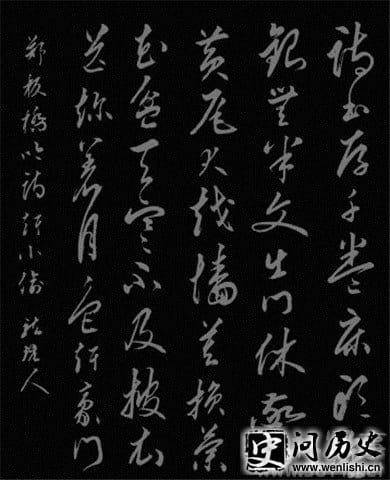 诗书存千卷床头
银无半文出门休惊
黄尾犬越墙莫损兰
花盆天寒不及披衣
送趁着月色赶豪门
郑板桥吟诗赶小偷
问历史
www.wenlishi.cn